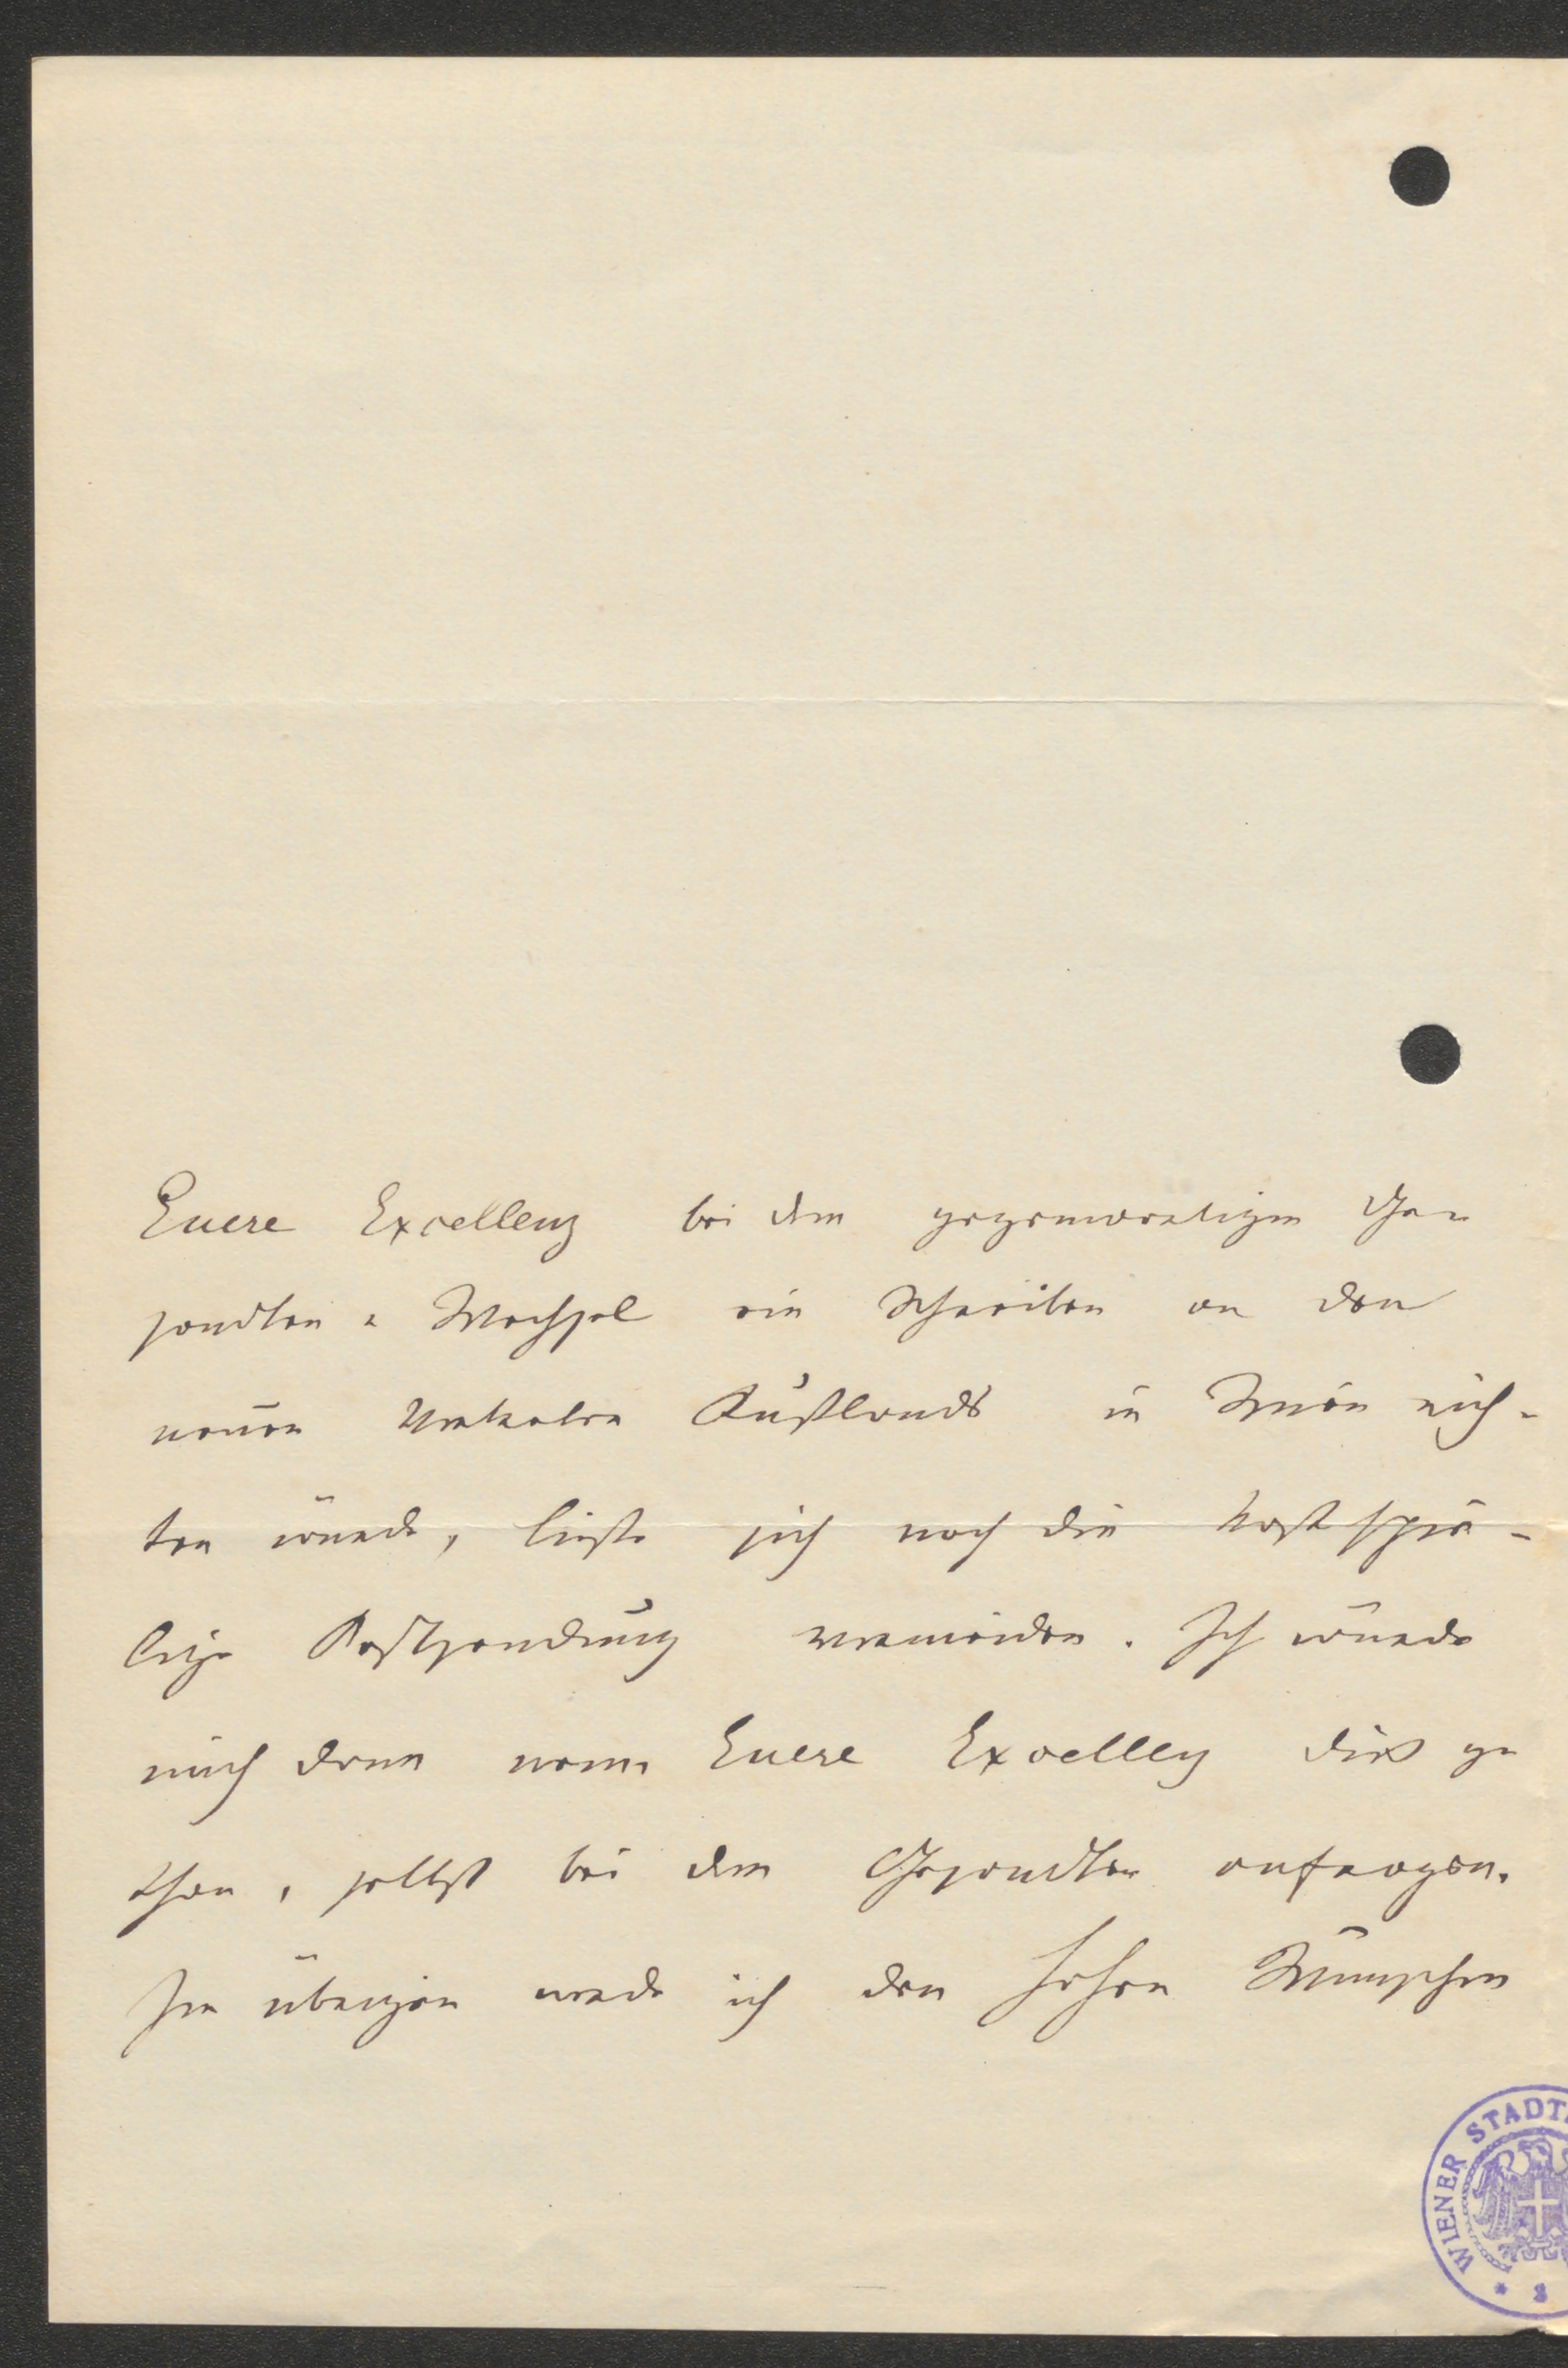 Euere Excellenz bei dem gegenwärtigen Ge-
sandten-Wechsel ein Schreiben an den
neuen Vertreter Rußlands in Wien rich-
ten würde, ließe sich noch die kostspie-
lige Postsendung vermeiden. Ich würde
mich dann wenn Euere Excellenz dies ge
than, selbst bei dem Gesandten anfragen.
Im übrigen werde ich den hohen Wünschen
WIENER STADT